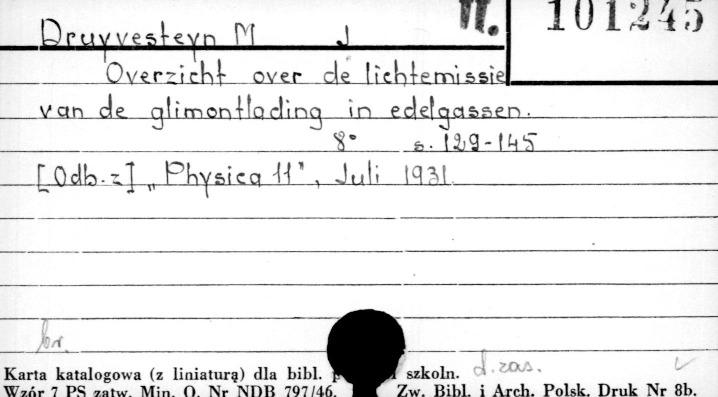 II. 101245
Druyvesteyn M J
Overzicht over de lichtemissie
van de glimontlading in edelgassen.
8° s. 129-145
[Odb. z] „Physica 11", Juli 1931.
br.
d. zas.
Karta katalogowa (z liniaturą) dla bibl. szkoln.
Wzór 7 PS zatw. Min. O. Nr NDB 797/46. Zw. Bibl. i Arch. Polsk. Druk Nr 8b.